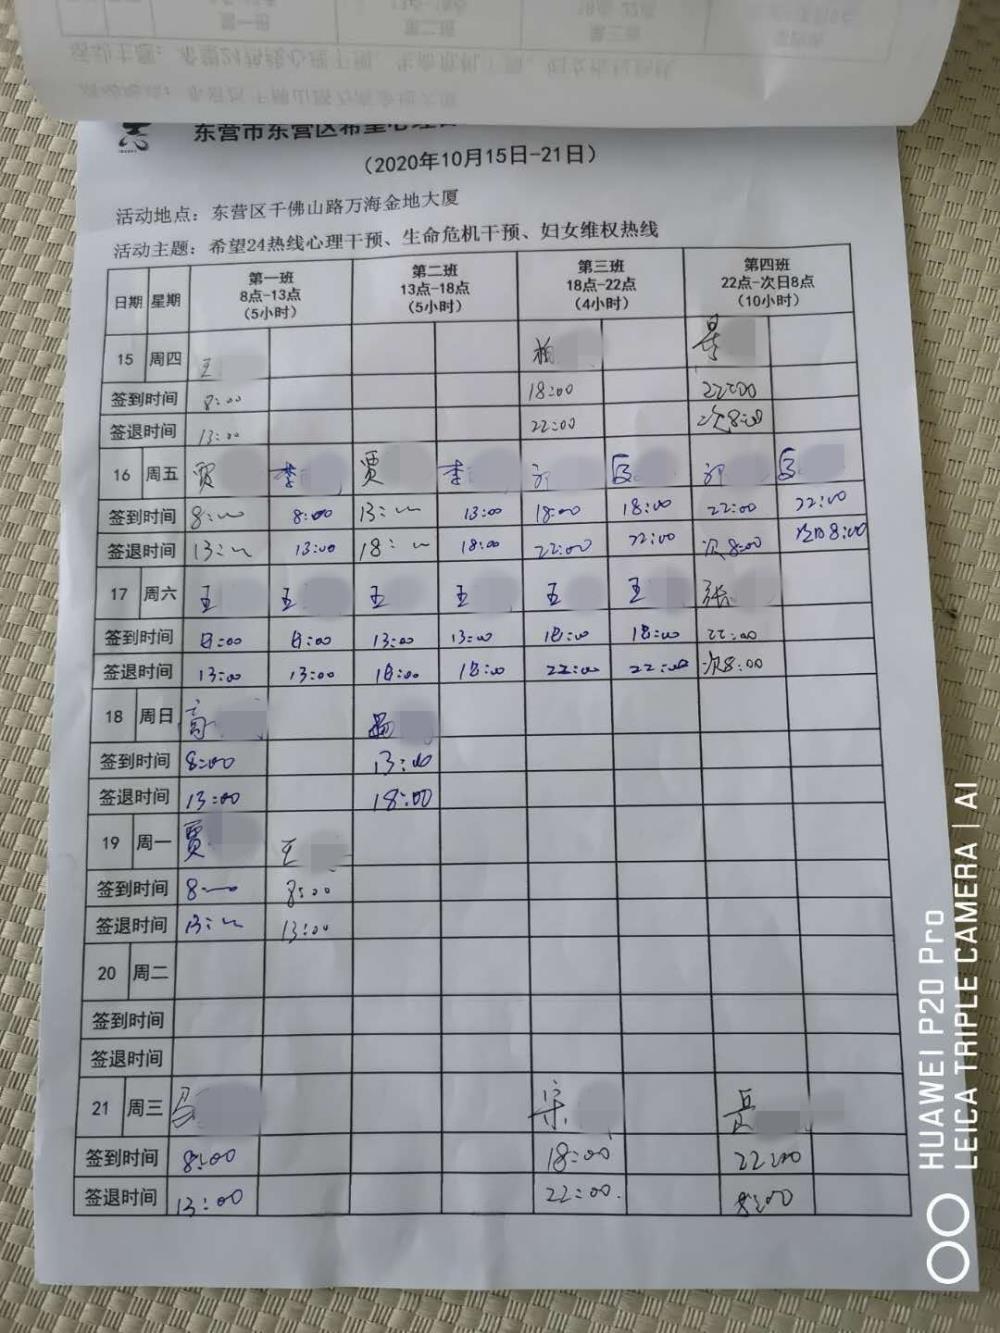 东营市东营区希望心理
（2020年10月15日-21日）
活动地点：东营区千佛山路万海金地大厦
活动主题：希望24热线心理干预、生命危机干预、妇女维权热线
日期 星期 第一班 8点-13点 （5小时） 第二班 13点-18点 （5小时） 第三班 18点-22点 （4小时） 第四班 22点-次日8点 （10小时）
15 周四 王
签到时间 8:00 18:00 22:00
签退时间 13:00 22:00 次8:00
16 周五 贾 李 贾 李
签到时间 8: 8:00 13: 13:00 18:00 18:00 22:00 22:00
签退时间 13: 13:00 18: 18:00 22:00 22:00 次8:00 次日8:00
17 周六 王 王 王 王 王 王 张
签到时间 8:00 8:00 13:00 13:00 18:00 18:00 22:00
签退时间 13:00 13:00 18:00 18:00 22:00 22:00 次8:00
18 周日 高
签到时间 8:00 13:00
签退时间 13:00 18:00
19 周一 贾 王
签到时间 8: 8:00
签退时间 13: 13:00
20 周二
签到时间
签退时间
21 周三 宋
签到时间 8:00 18:00 22:00
签退时间 13:00 22:00. 8:00
HUAWEI P20 Pro
LEICA TRIPLE CAMERA | AI